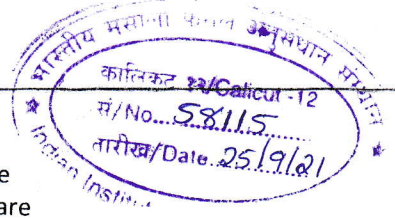 भारतीय मसाला फसल अनुसंधान संस्थान
कालिकट-12/Calicut -12
सं/No...58115
तारीख/Date 25/9/21
Indian Instit
e
are